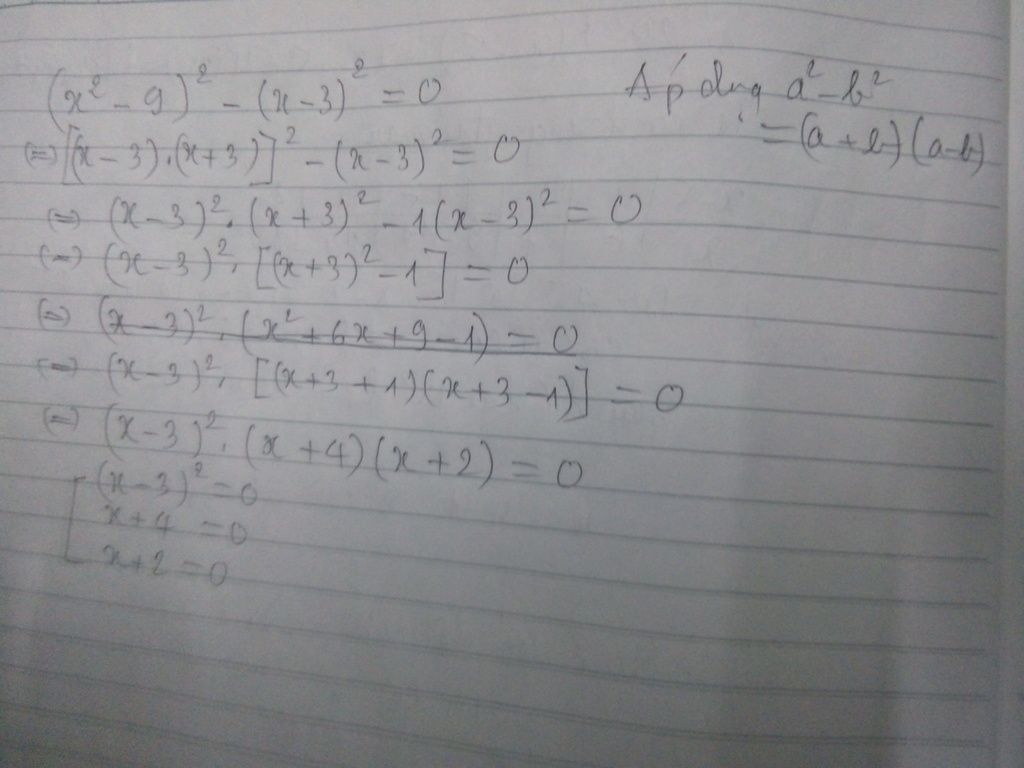 (x² - 9)² - (x - 3)² = 0
Áp dụng a² - b²
= (a + b)(a - b)
(=) [(x - 3).(x + 3)]² - (x - 3)² = 0
(=) (x - 3)². (x + 3)² - 1(x - 3)² = 0
(=) (x - 3)². [(x + 3)² - 1] = 0
(=) (x - 3)². (x² + 6x + 9 - 1) = 0
(=) (x - 3)². [(x + 3 + 1)(x + 3 - 1)] = 0
(=) (x - 3)². (x + 4)(x + 2) = 0
[ (x - 3)² = 0
x + 4 = 0
x + 2 = 0